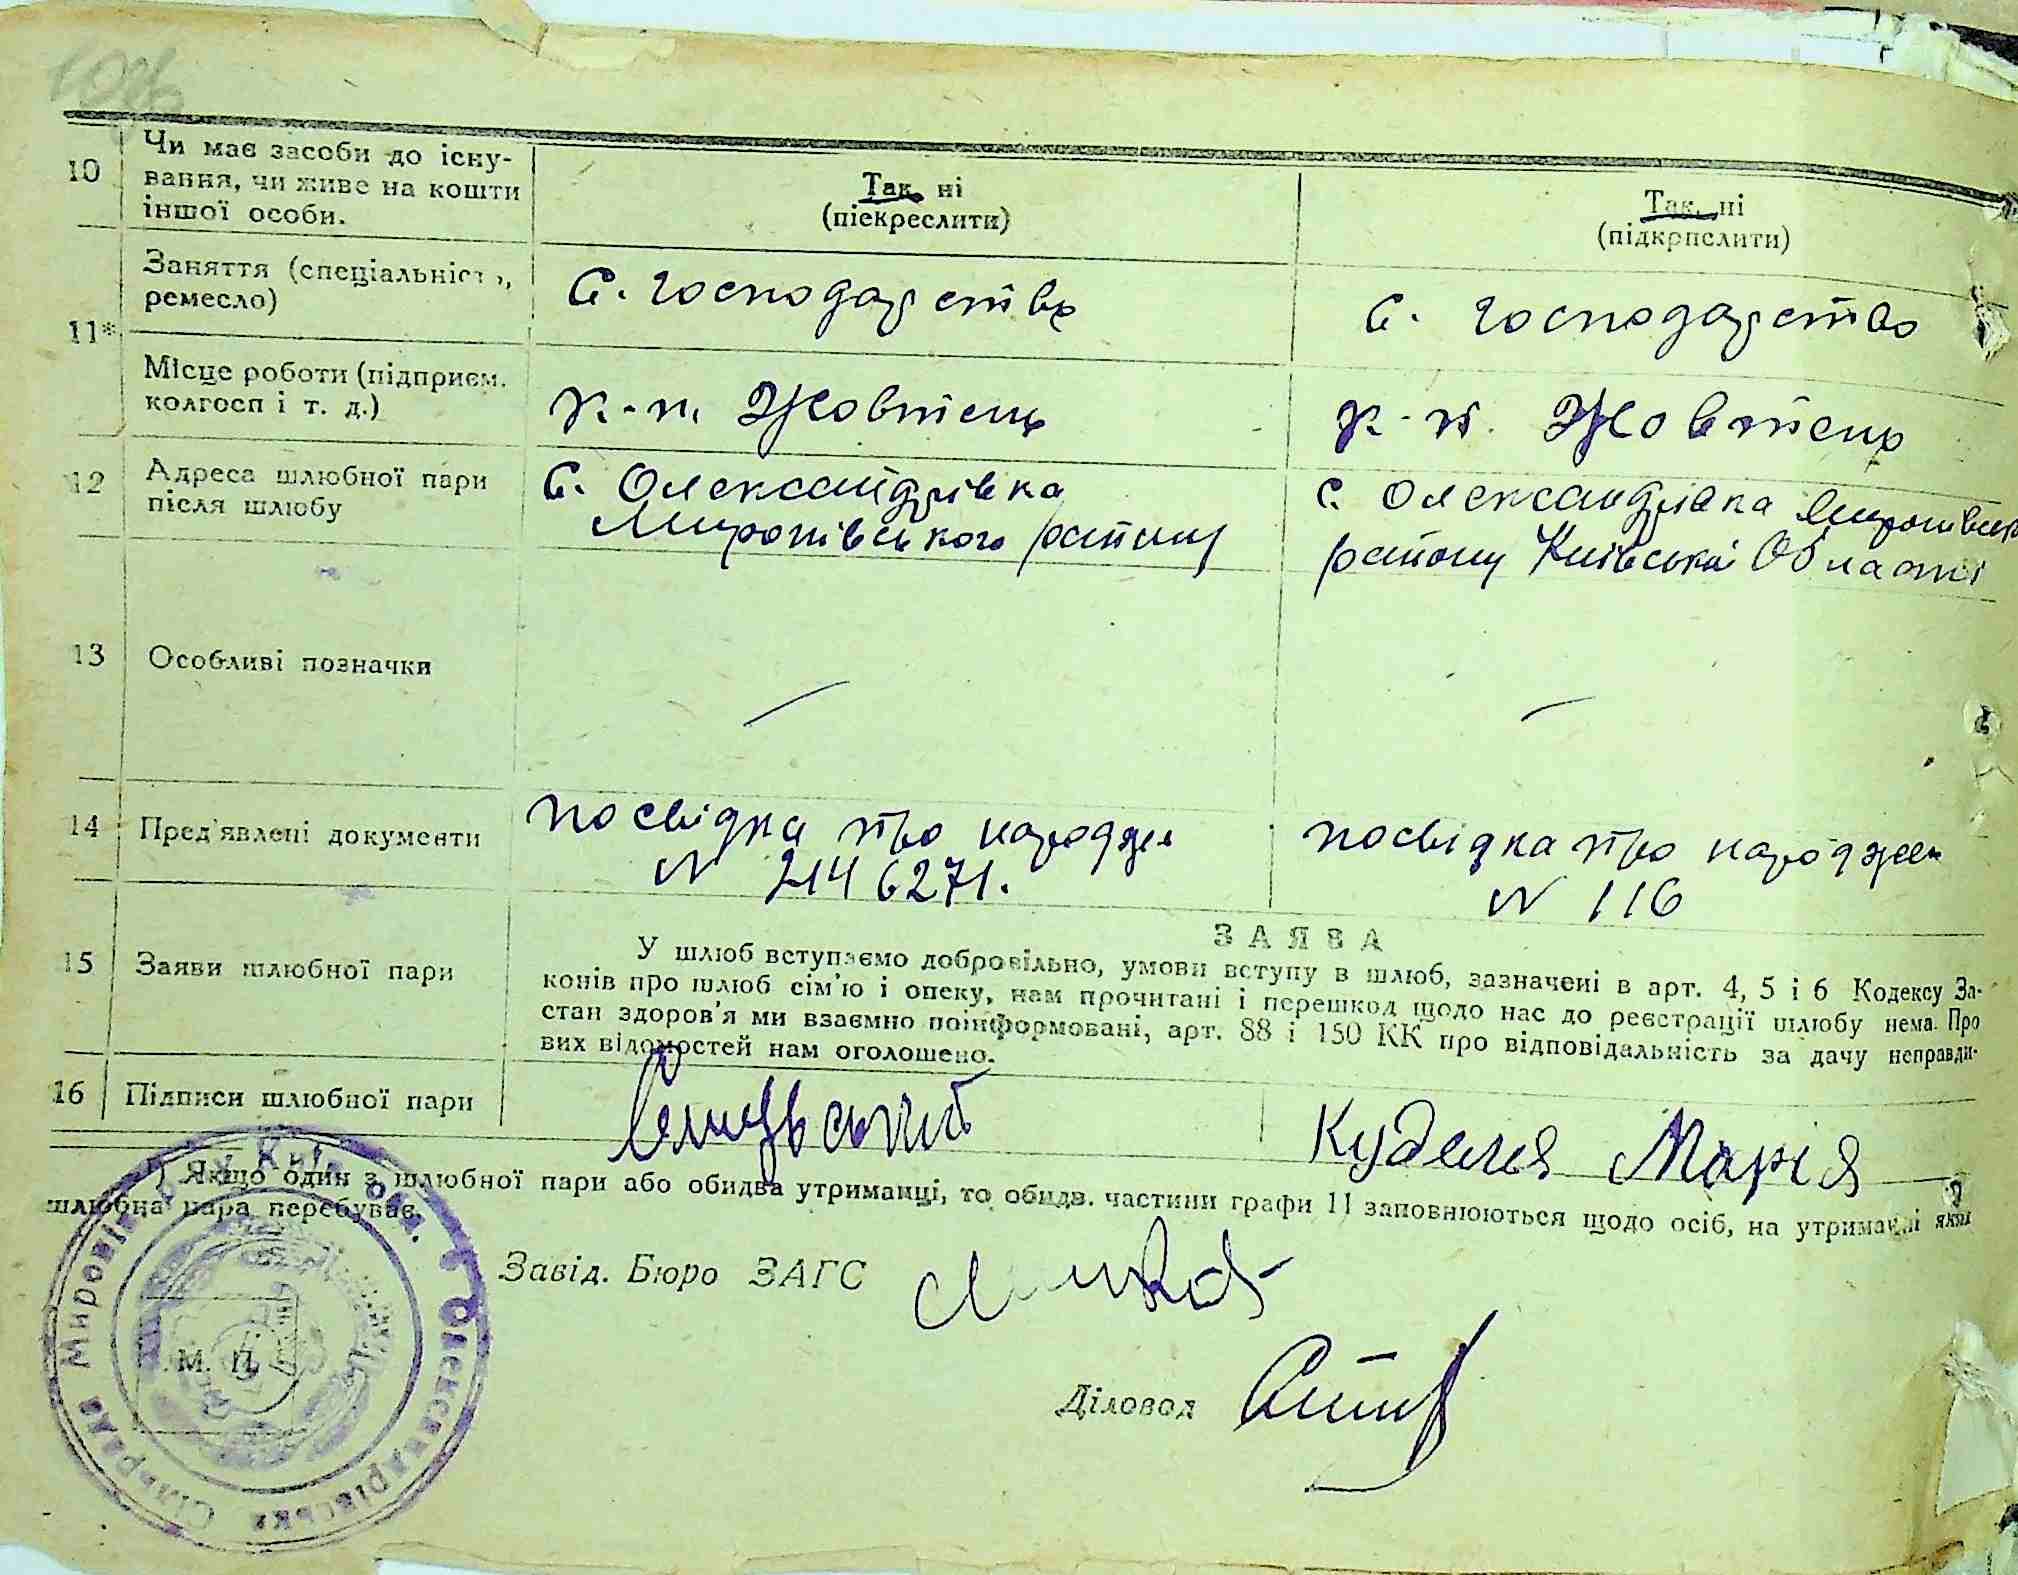 10
Чи має засоби до існу-
вання, чи живе на кошти
іншої особи.
Так, ні
(пієкреслити)
Так, ні
(підкрпслити)
11*
Заняття (спеціальність,
ремесло)
С. господарство
С. господарство
Місце роботи (підприєм.
колгосп і т. д.)
к-п. Жовтень
к-п. Жовтень
12
Адреса шлюбної пари
після шлюбу
С. Олександрівка
Миропівського району
с. Олександрівка Миропівськ
району Київської Області
13
Особливі позначки
14
Пред'явлені документи
посвідка про народжен
N 2146271.
посвідка про народжен
N 116
15
Заяви шлюбної пари
ЗАЯВА
У шлюб вступаємо добровільно, умови вступу в шлюб, зазначені в арт. 4, 5 і 6 Кодексу За-
конів про шлюб сім'ю і опеку, нам прочитані і перешкод щодо нас до реєстрації шлюбу нема. Про
стан здоров'я ми взаємно поінформовані, арт. 88 і 150 КК про відповідальність за дачу неправди-
вих відомостей нам оголошено.
16
Підписи шлюбної пари
Куделя Марія
*) Якщо один з шлюбної пари або обидва утриманці, то обидв. частини графи 11 заповнюються щодо осіб, на утриманні яких
шлюбна пара перебуває.
Завід. Бюро ЗАГС
М. П.
Діловод
Олександрівська Сільрада